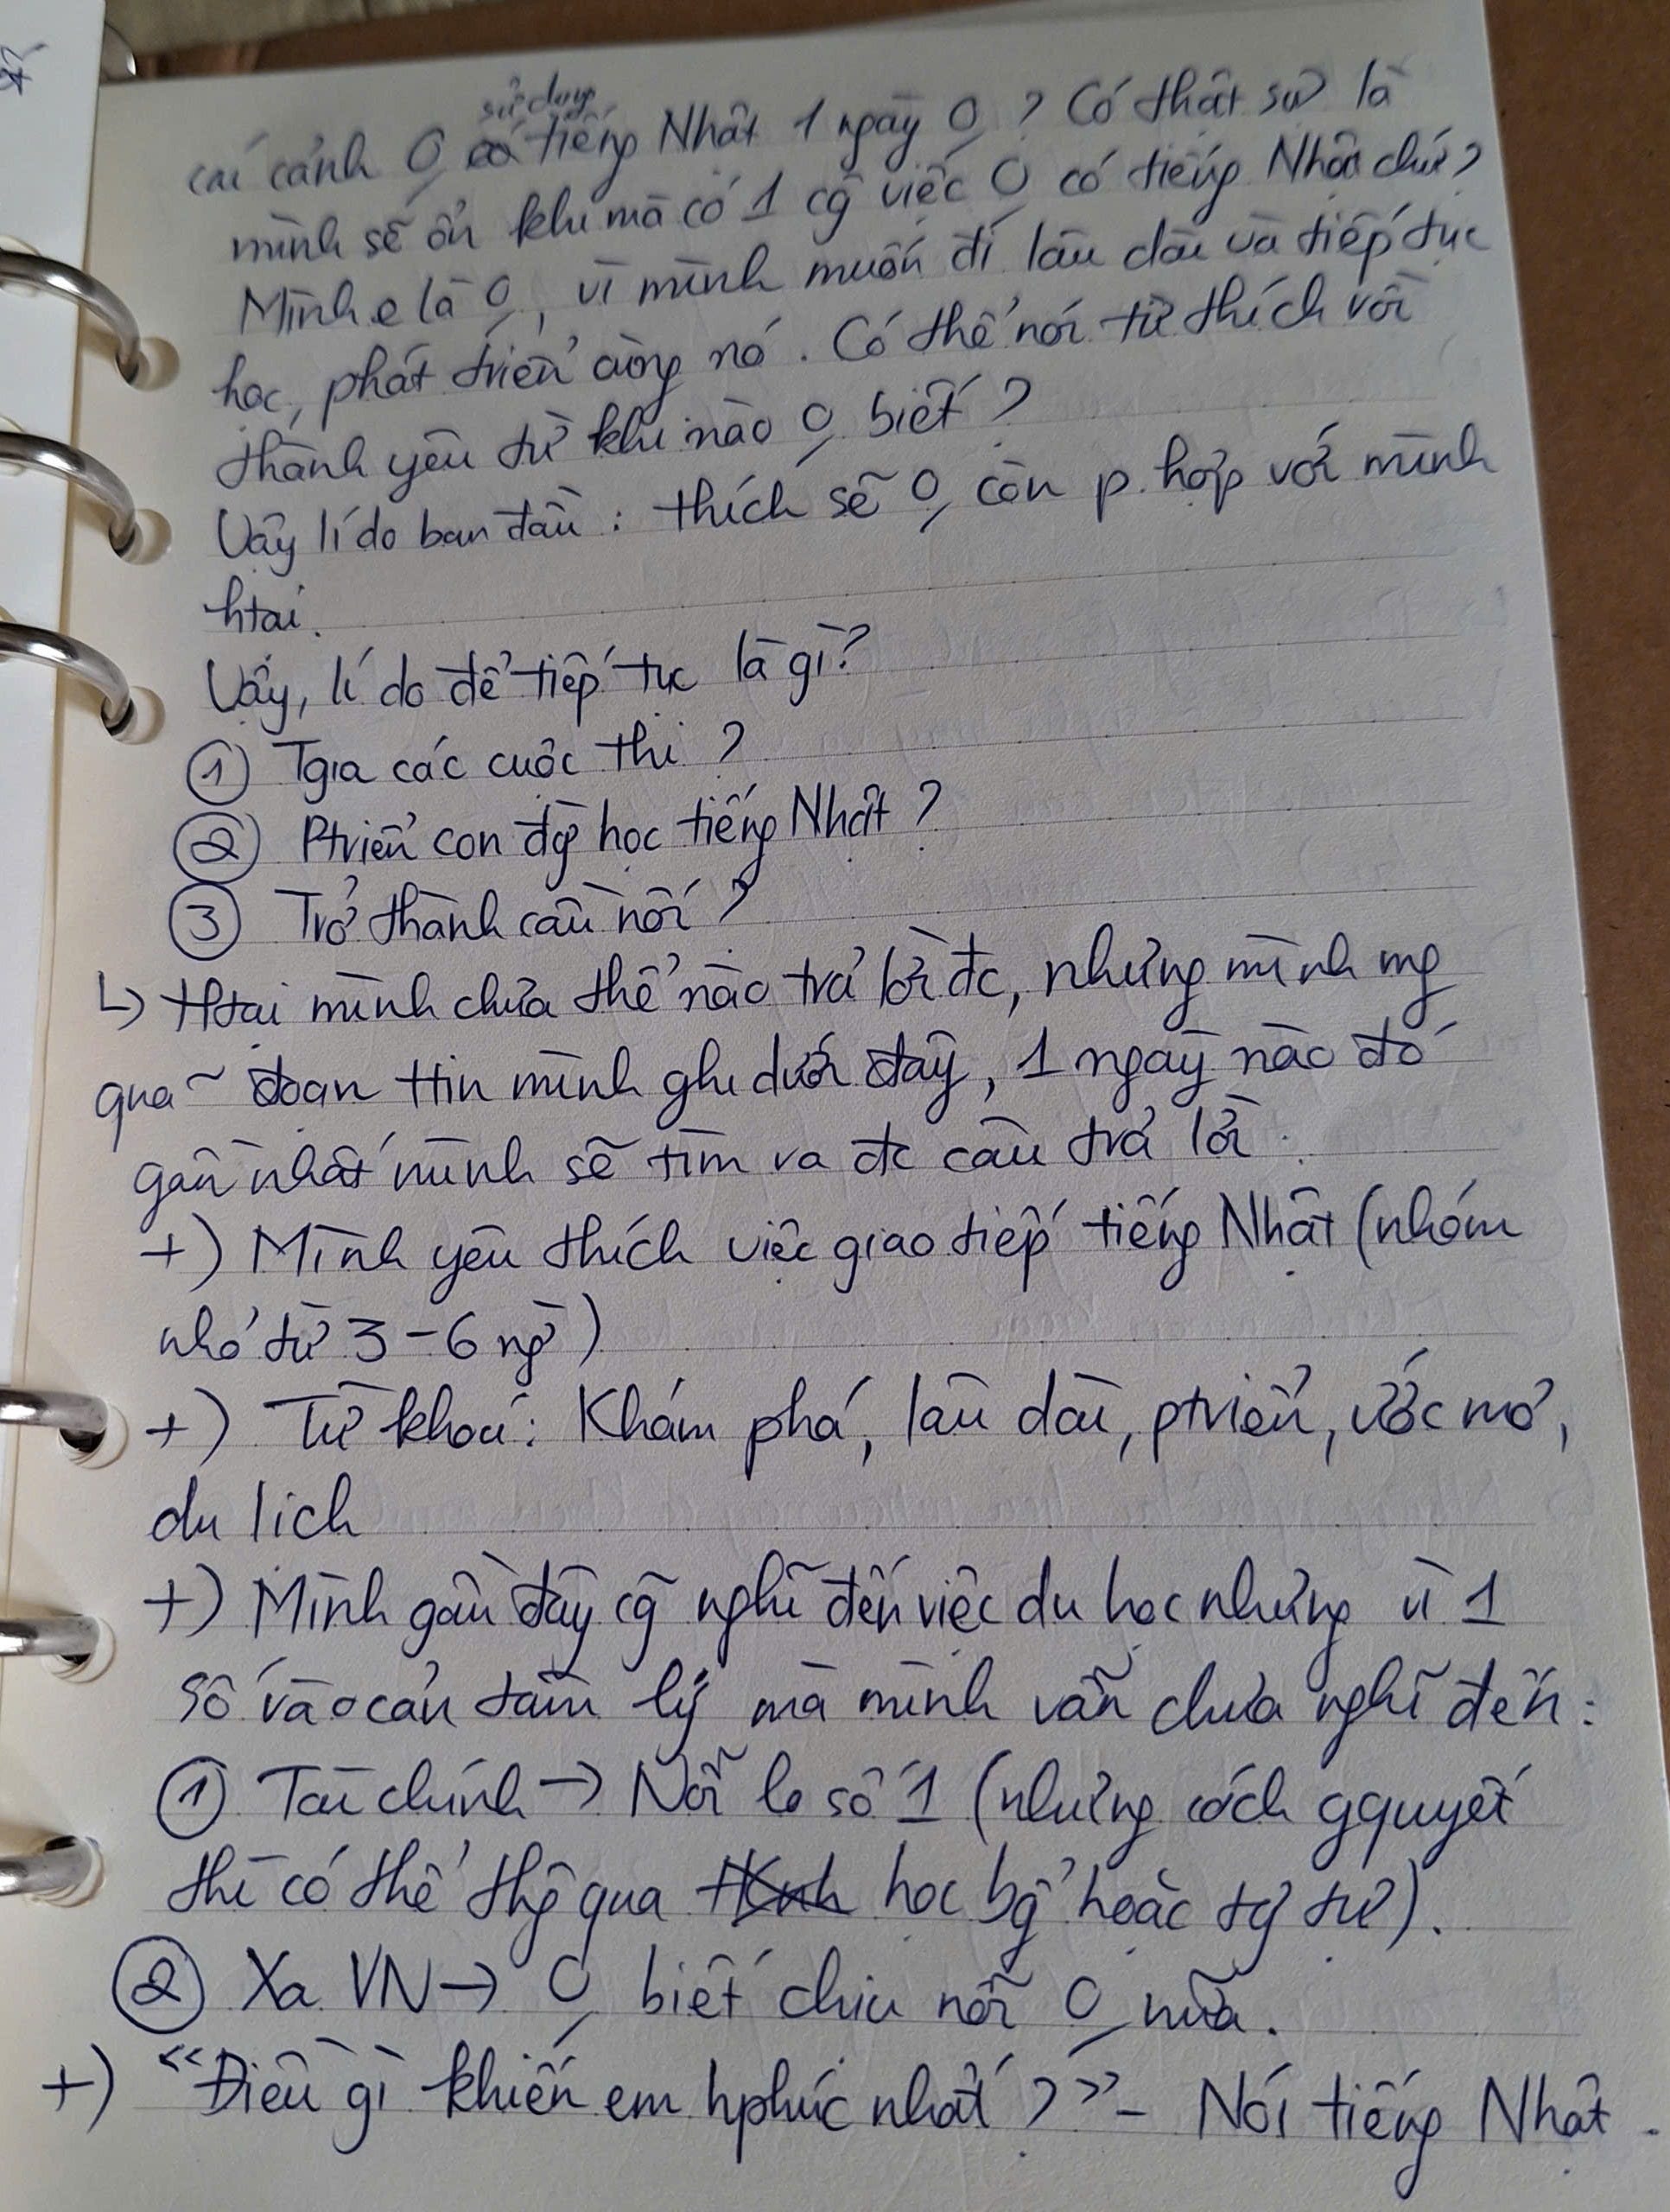 sử dụng
cái cảnh 0 tiếng Nhật 1 ngày 0? Có thật sự là
mình sẽ ổn khi mà có 1 cg việc 0 có tiếng Nhật chứ?
Mình e là 0, vì mình muốn đi lâu dài và tiếp tục
học, phát triển cùng nó. Có thể nói từ thích với
thành yêu từ khi nào 0 biết?
Vậy lí do ban đầu: thích sẽ 0 còn p.hợp với mình
htại.
Vậy, lí do để tiếp tục là gì?
① Tgia các cuộc thi?
② Ptriển con đg học tiếng Nhật?
③ Trở thành cầu nối?
↳ Htại mình chưa thể nào trả lời đc, nhưng mình mg
qua ~ đoạn ttin mình ghi dưới đây, 1 ngày nào đó
gần nhất mình sẽ tìm ra đc câu trả lời.
+) Mình yêu thích việc giao tiếp tiếng Nhật (nhóm
nhỏ từ 3-6 ng)
+) Từ khoá: Khám phá, lâu dài, ptriển, ước mơ,
du lịch
+) Mình gần đây cg nghĩ đến việc du học nhưng vì 1
số rào cản tâm lý mà mình vẫn chưa nghĩ đến:
① Tài chính → Nỗi lo số 1 (nhưng cách gquyết
thì có thể thg qua học bg hoặc tự túc).
② Xa VN → 0 biết chịu nổi 0 nữa.
+) "Điều gì khiến em hphúc nhất?" - Nói tiếng Nhật.